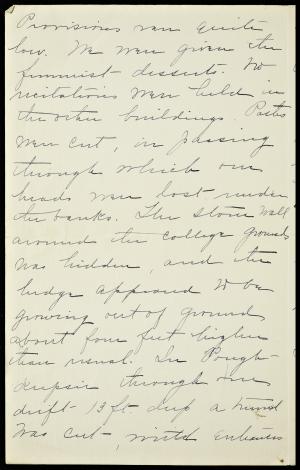 Provisions ran quite
low. We were given the
funniest desserts. No
recitations were held in
the other buildings. Paths
were cut, in passing
through which our
heads were lost under
the banks. The stone wall
around the college grounds
was hidden, and the
hedge appeared to be
growing out of ground
about four feet higher
than usual. In Pough-
keepsie through one
drift - 13 ft. deep a tunnel
was cut, with entrances